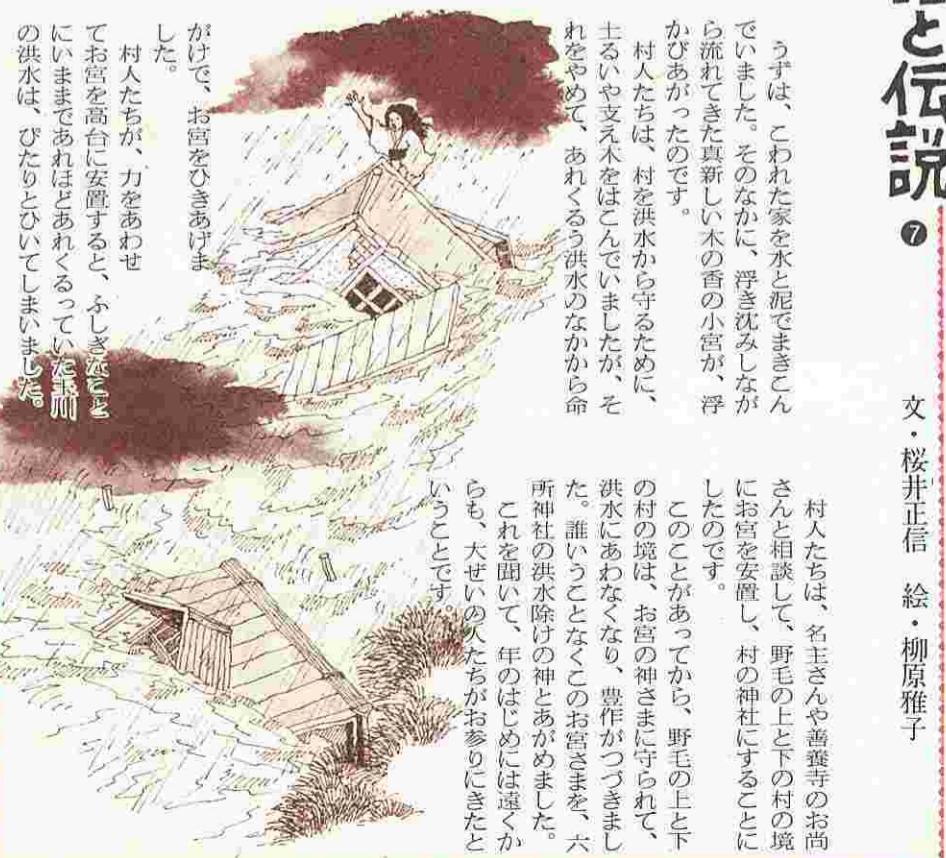 と伝説
❼
文・桜井正信　絵・柳原雅子
うずは、こわれた家を水と泥でまきこん
でいました。そのなかに、浮き沈みしなが
ら流れてきた真新しい木の香の小宮が、浮
かびあがったのです。
村人たちは、村を洪水から守るために、
土るいや支え木をはこんでいましたが、そ
れをやめて、あれくるう洪水のなかから命
がけで、お宮をひきあげま
した。
村人たちが、力をあわせ
てお宮を高台に安置すると、ふしぎなこと
にいままであれほどあれくるっていた玉川
の洪水は、ぴたりとひいてしまいました。
村人たちは、名主さんや善養寺のお尚
さんと相談して、野毛の上と下の村の境
にお宮を安置し、村の神社にすることに
したのです。
このことがあってから、野毛の上と下
の村の境は、お宮の神さまに守られて、
洪水にあわなくなり、豊作がつづきまし
た。誰いうことなくこのお宮さまを、六
所神社の洪水除けの神とあがめました。
これを聞いて、年のはじめには遠くか
らも、大ぜいの人たちがお参りにきたと
いうことです。